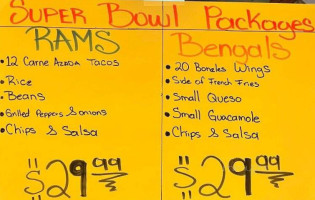 Super Bowl Packages
RAMS
• 12 Carne Azada Tacos
• Rice
• Beans
• Grilled Peppers & onions
• Chips & Salsa
$29.99
Bengals
• 20 Boneles Wings
• Side of French Fries
• Small Queso
• Small Guacamole
• Chips & Salsa
$29.99